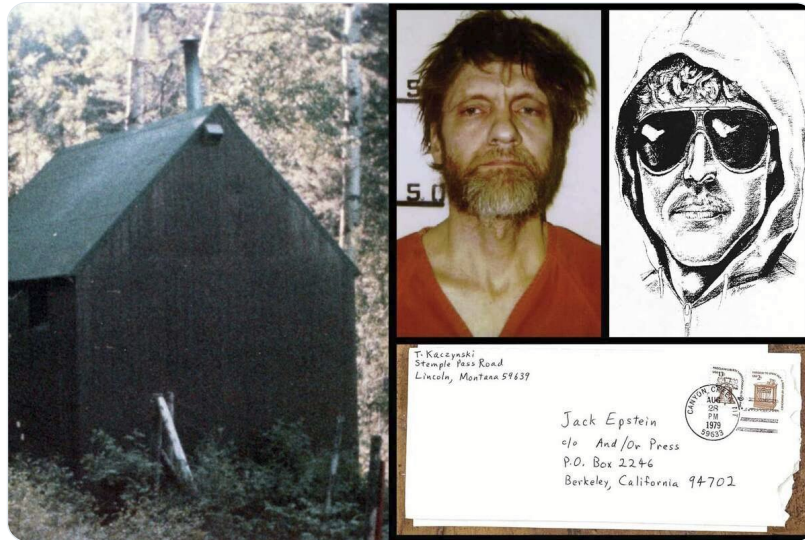 5
5 0
T. Kaczynski
Stemple Pass Road
Lincoln, Montana 59639
CANYON CREEK, MT
AUG
28
PM
1979
59633
Jack Epstein
c/o And/Or Press
P.O. Box 2246
Berkeley, California 94702